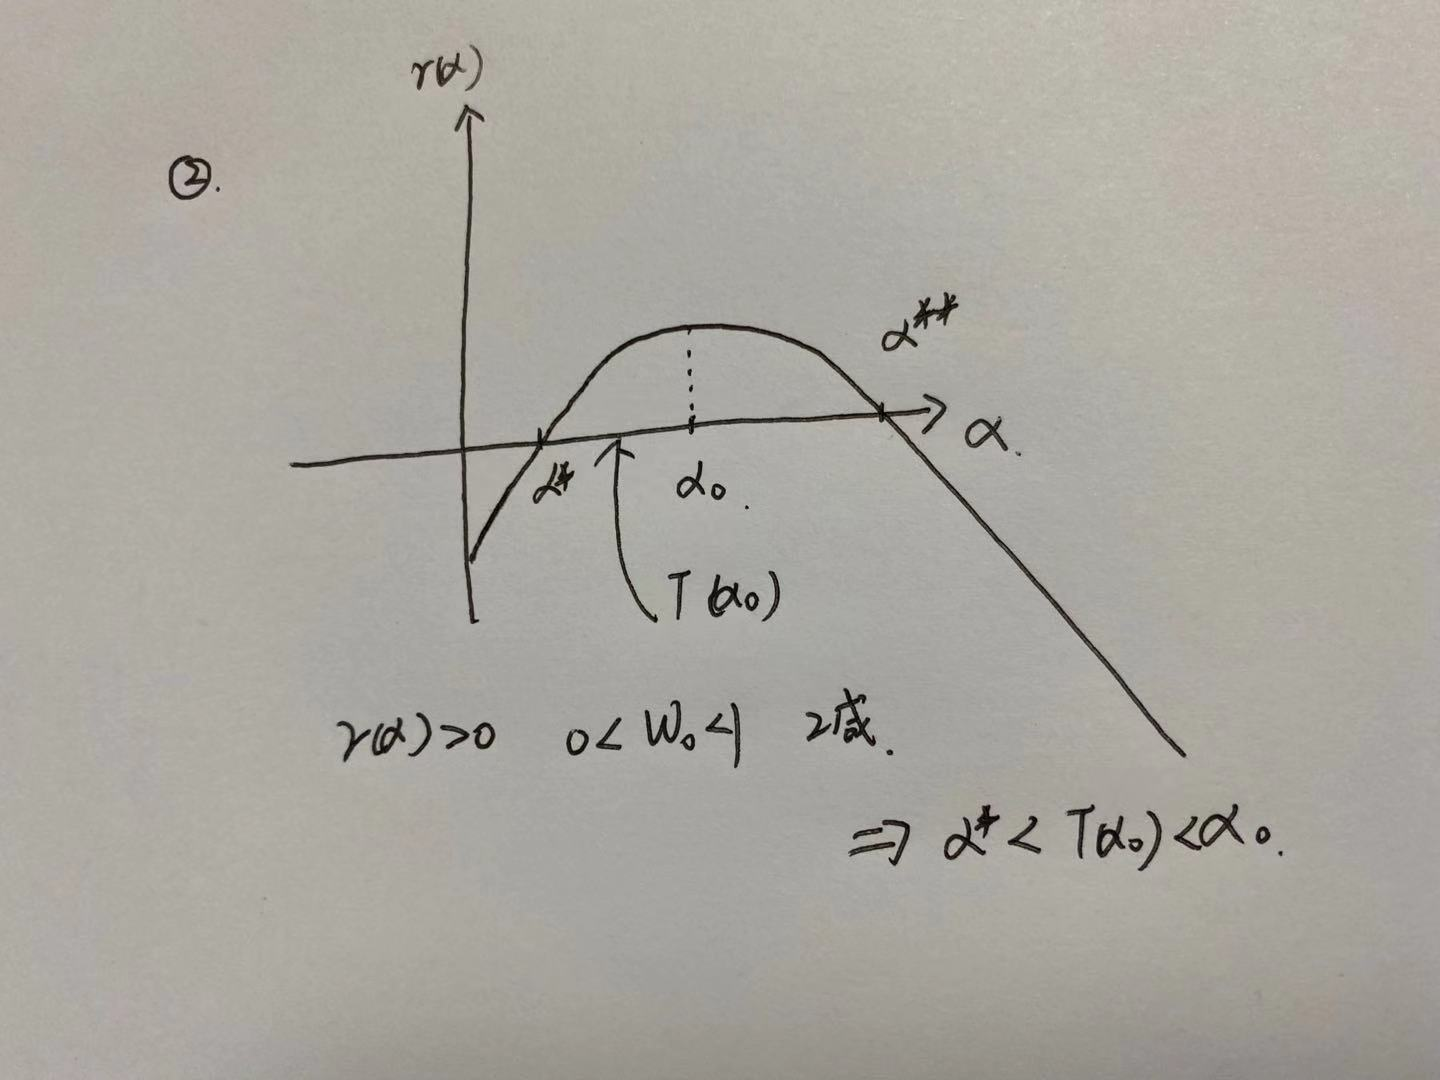 r(α)
②.
α**
α.
α*
α₀.
T(α₀)
r(α)>0 0< W₀<1 2减.
⇒ α* < T(α₀)<α₀.